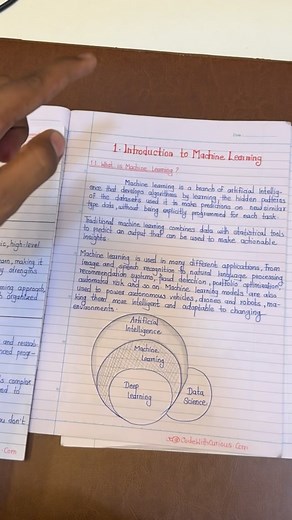 1. Introduction to Machine Learning
1.1. What is Machine Learning ?
Machine learning is a branch of artificial Intellig-
ence that develops algorithms by learning, the hidden patterns
of the datasets used it to make predictions on new similar
type data, without being explicitly programmed for each task.
Traditional machine learning combines data with statistical tools
to predict an output that can be used to make actionable
insights.
Machine learning is used in many different applications, from
image and speech recognition to natural language processing,
recommendation systems, fraud detection, portfolio optimization,
automated task and so on. Machine learning models are also
used to power autonomous vehicles, drones and robots, ma-
king them more intelligent and adaptable to changing
environments.
Artificial
Intelligence
Machine
Learning
Deep
Learning
Data
Science
ic, high-level
making it
strengths
ing approach
organized
and reusab-
prog-
complex
ed to
you don't
.Com